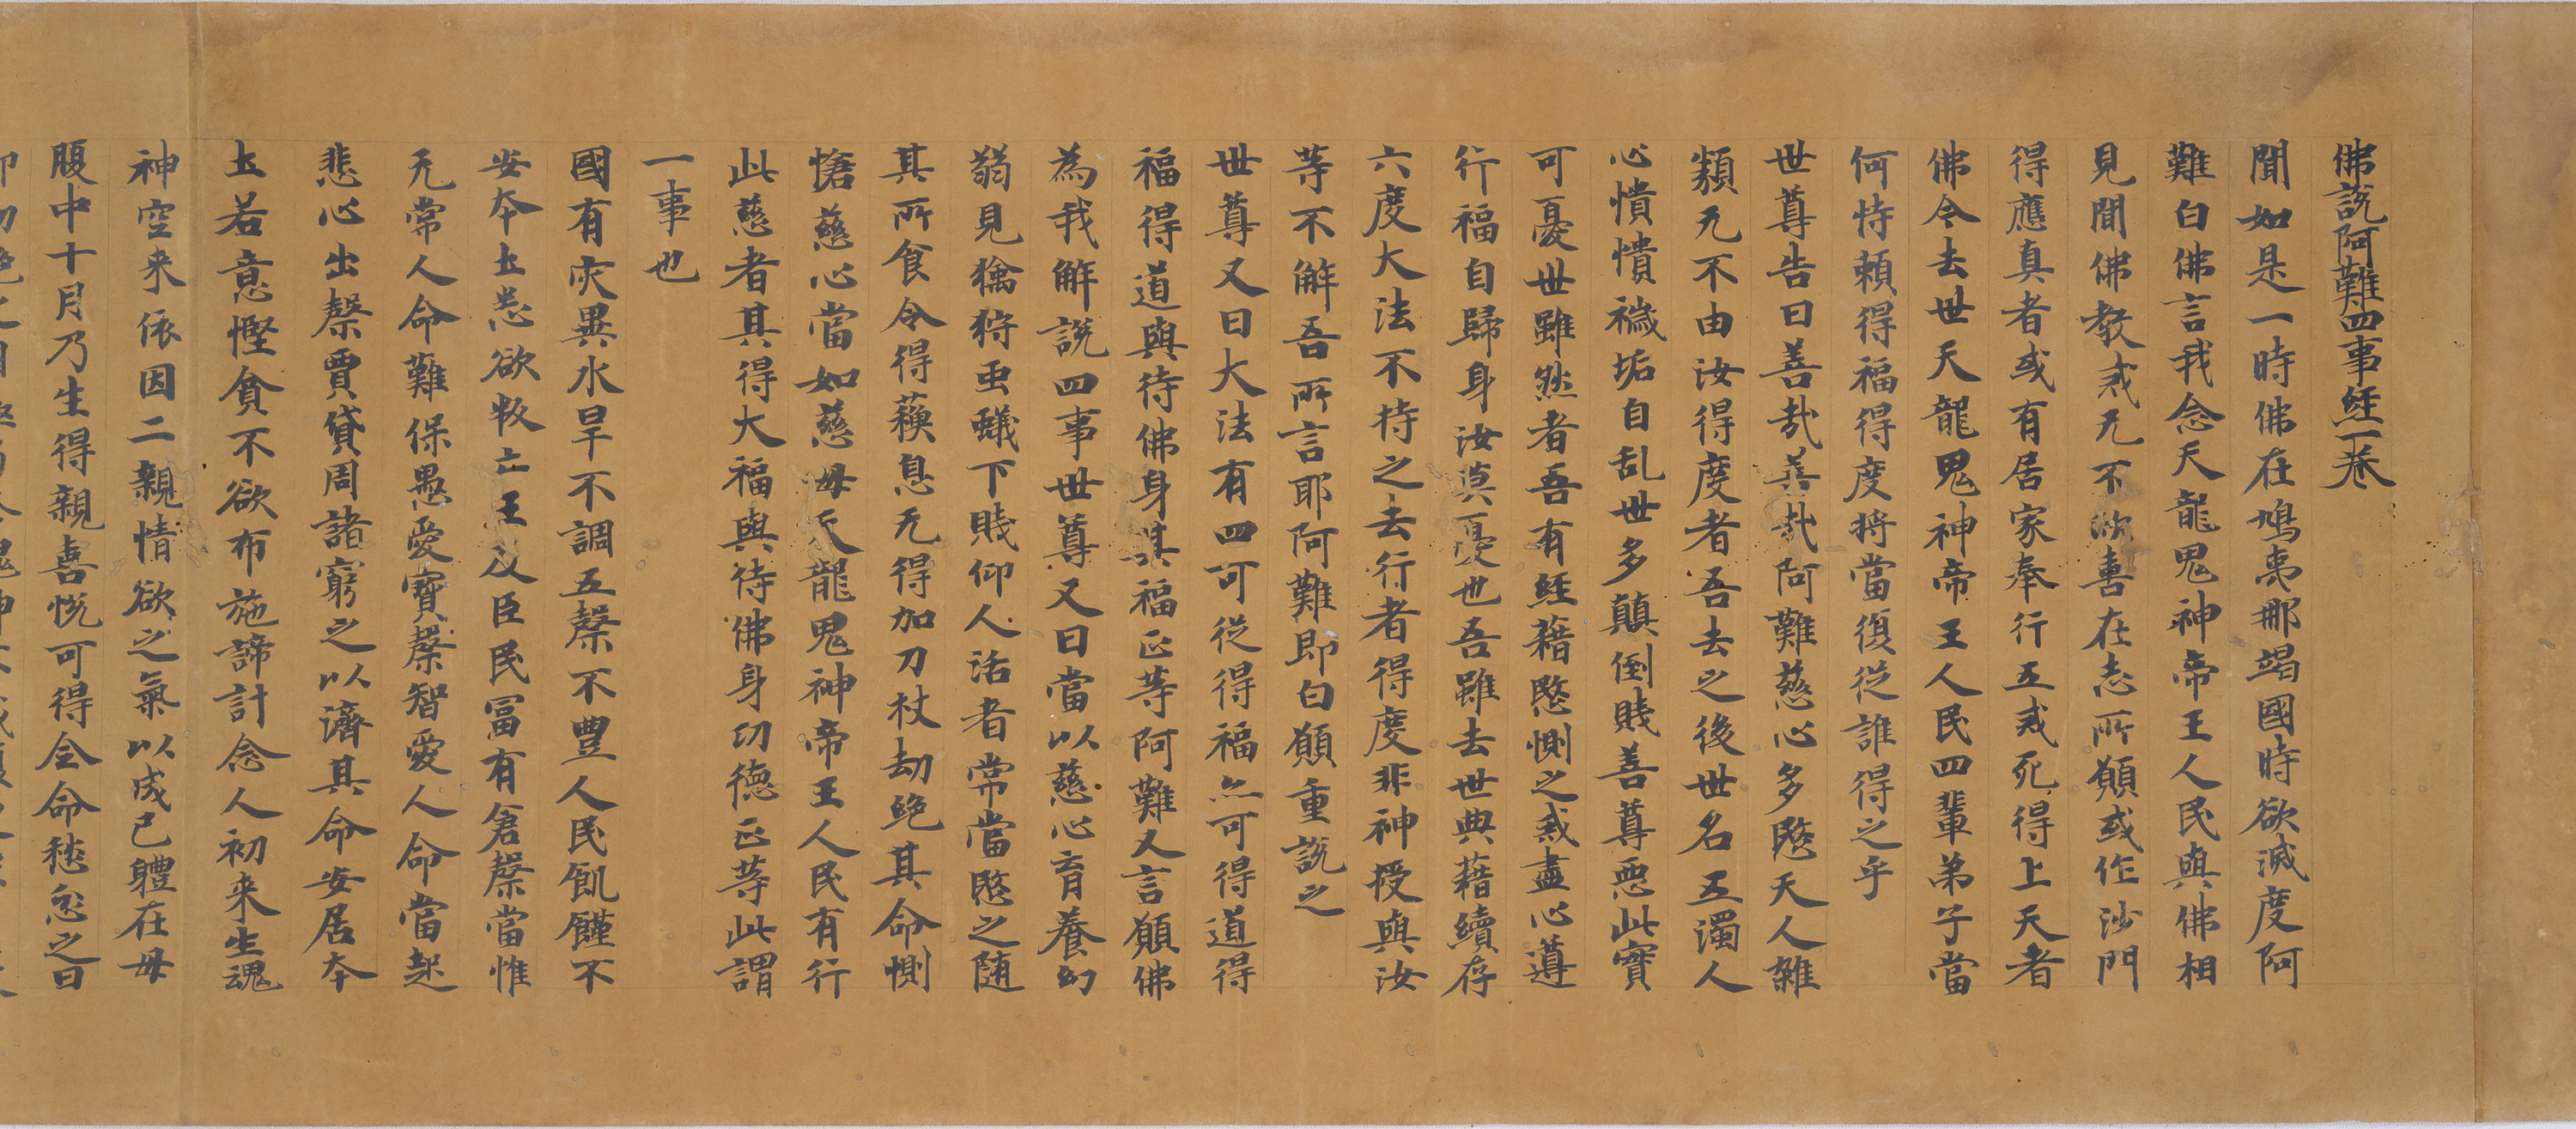 佛說阿難四事経一巻
聞如是一時佛在鳩夷那竭國時欲滅度阿
難白佛言我念天龍鬼神帝王人民與佛相
見聞佛教戒无不欣喜在志所願或作沙門
得應真者或有居家奉行五戒死得上天者
佛今去世天龍鬼神帝王人民四輩弟子當
何恃頼得福得度将當復従誰得之乎
世尊告曰善哉善哉阿難慈心多愍天人雜
類无不由汝得度者吾去之後世名五濁人
心憒憒穢垢自乱世多顛倒賤善尊惡此寶
可憂世雖然者吾有経藉愍惻之戒盡心遵
行福自歸身汝莫憂也吾雖去世典藉續存
六度大法不持之去行者得度非神授與汝
等不解吾所言耶阿難即白願重說之
世尊又曰大法有四可従得福亦可得道得
福得道與待佛身其福正等阿難又言願佛
為我解說四事世尊又曰當以慈心育養幼
弱見禽狩虫蟻下賤仰人活者常當愍之随
其所食令得蘓息无得加刀杖劫絶其命惻
愴慈心當如慈母天龍鬼神帝王人民有行
此慈者其得大福與待佛身功德正等此謂
一事也
國有灾異水旱不調五槃不豊人民飢饉不
安本土悉欲叛亡王及臣民冨有倉槃當惟
无常人命難保愚愛寶槃智愛人命當起
悲心出槃賈貸周諸窮之以濟其命安居本
土若意慳貪不欲布施諦計念人初来生魂
神空来依因二親情欲之氣以成己軆在母
腹中十月乃生得親喜悦可得全命愁忿之日